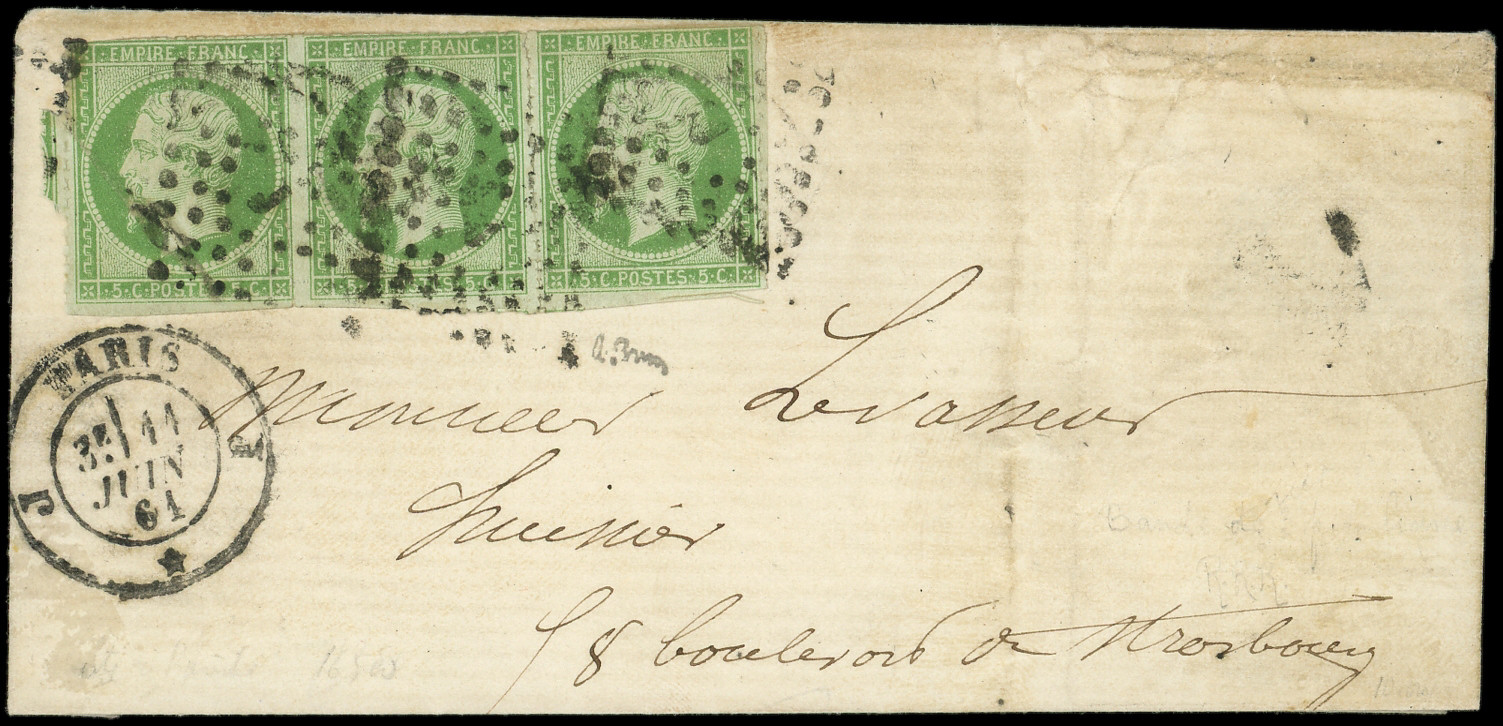 EMPIRE FRANC EMPIRE FRANC EMPIRE FRANC
5·C·POSTES·5·C· POSTES·5·C· 5·C·POSTES·5·C·
PARIS
3E 11
JUIN
61
J
Monsieur Levasseur
huissier
58 boulevard de Strasbourg
RRR.